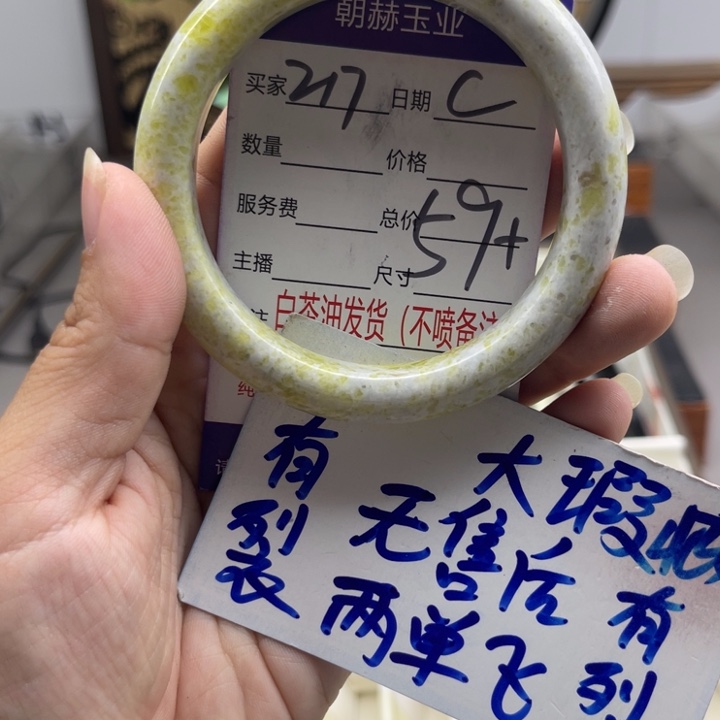 朝赫玉业
买家 217 日期 C
数量 价格
服务费 总价
主播 尺寸 59+
白茶油发货（不喷备注
纯
有裂
大瑕
无售后
两单飞
有裂